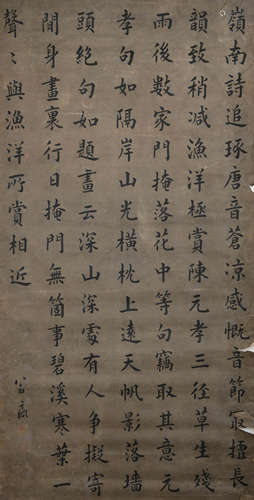 嶺南詩追琢唐音蒼涼感慨音節㝡擅長
韻致稍減漁洋極賞陳元孝三徑草生殘
雨後數家門掩落花中等句竊取其意元
孝句如隔岸山光橫枕上遠天帆影落墻
頭絕句如題畫云深山深處有人爭擬寄
閒身畫裏行日掩門無箇事碧溪寒葉一
聲聲與漁洋所賞相近
翁